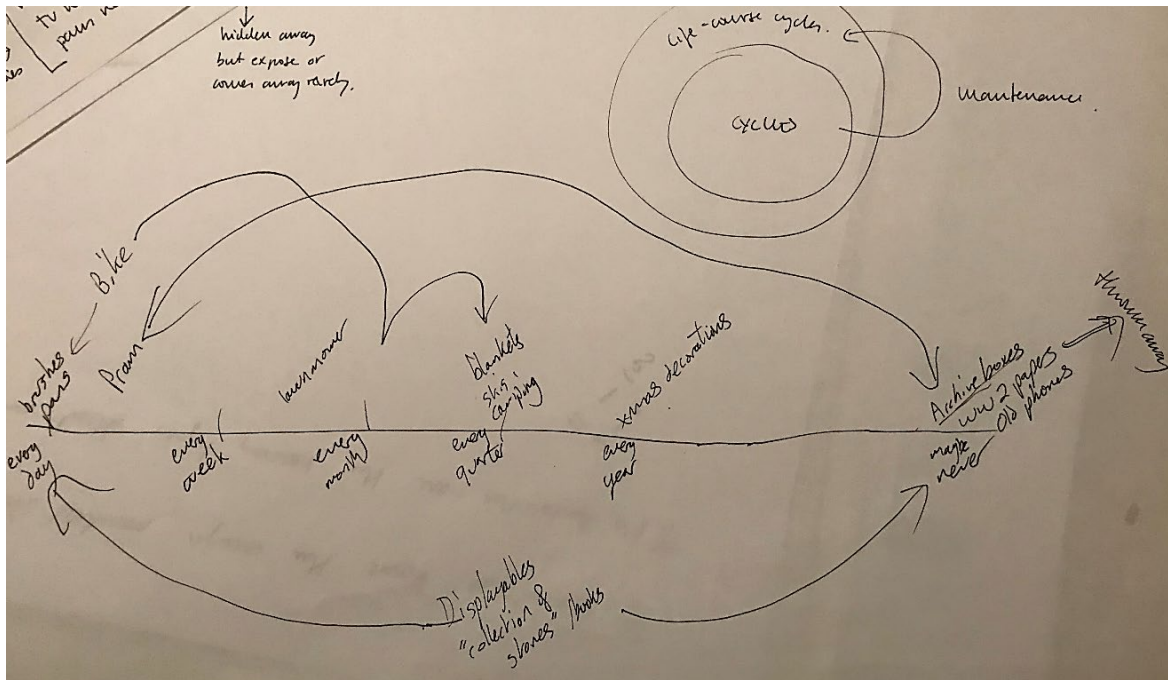 tv
hidden away
but expose or
comes away rarely.
life-course cycles.
cycles
maintenance.
Bike
brushes
pans
Pram
lawnmower
blankets
skis
camping
xmas decorations
Archive boxes
ww2 papers
Old phones
thrown away
every
day
every
week
every
month
every
quarter
every
year
maybe
never
Displayables
"collection of
stones" /books